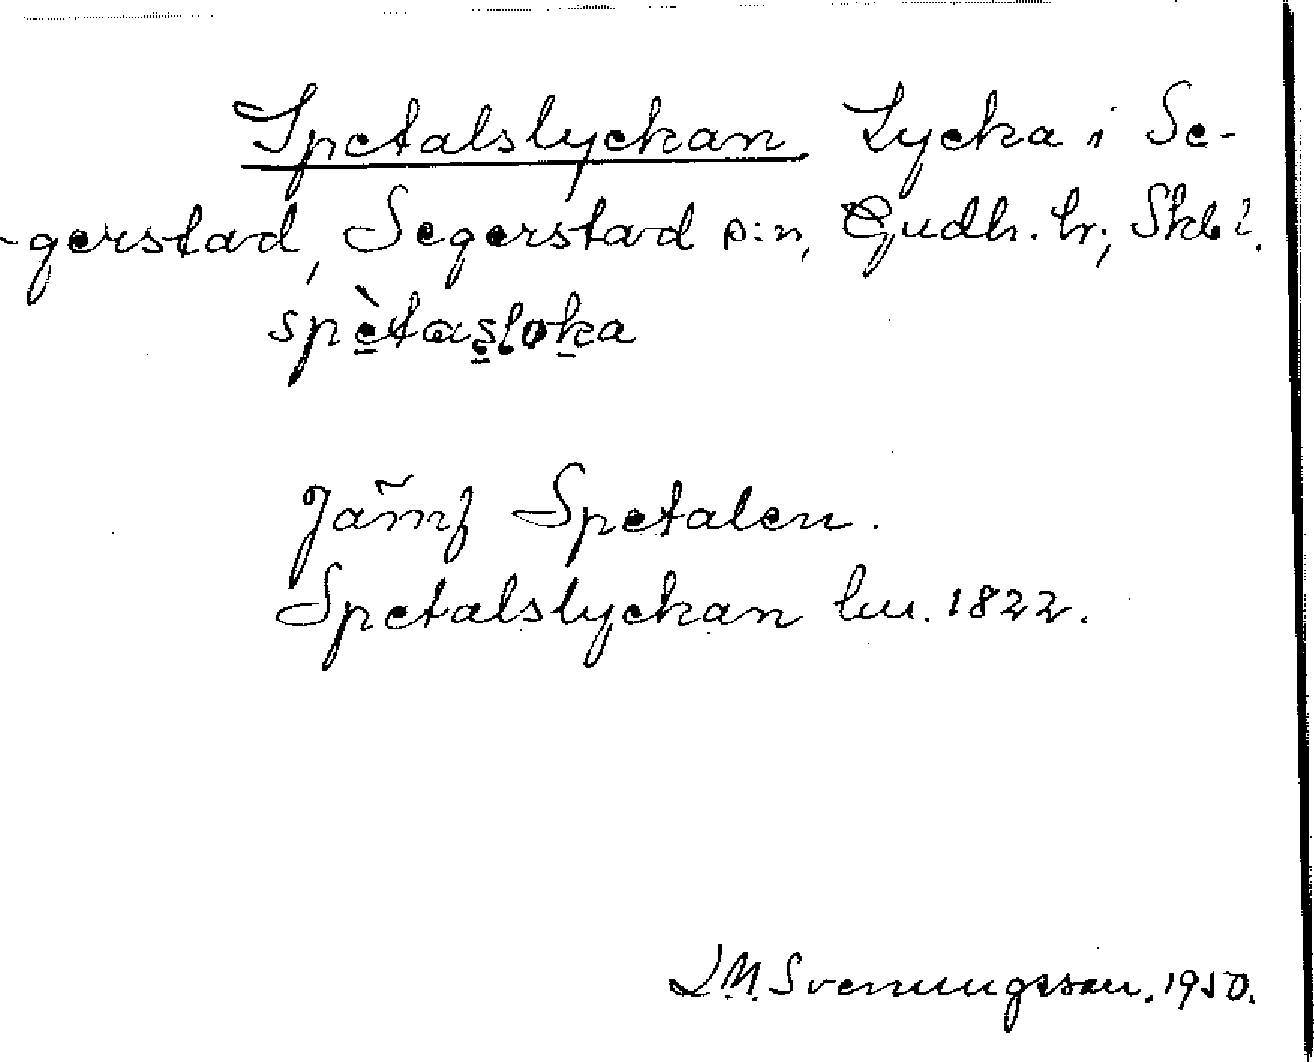 Spetalslyckan Lycka i Se-
-gerstad, Segerstad s:n, Gudh. hr., Skbl.
spètasloka
Jämf Spetalen.
Spetalslyckan lm. 1822.
L M. Svenungsson. 1950.